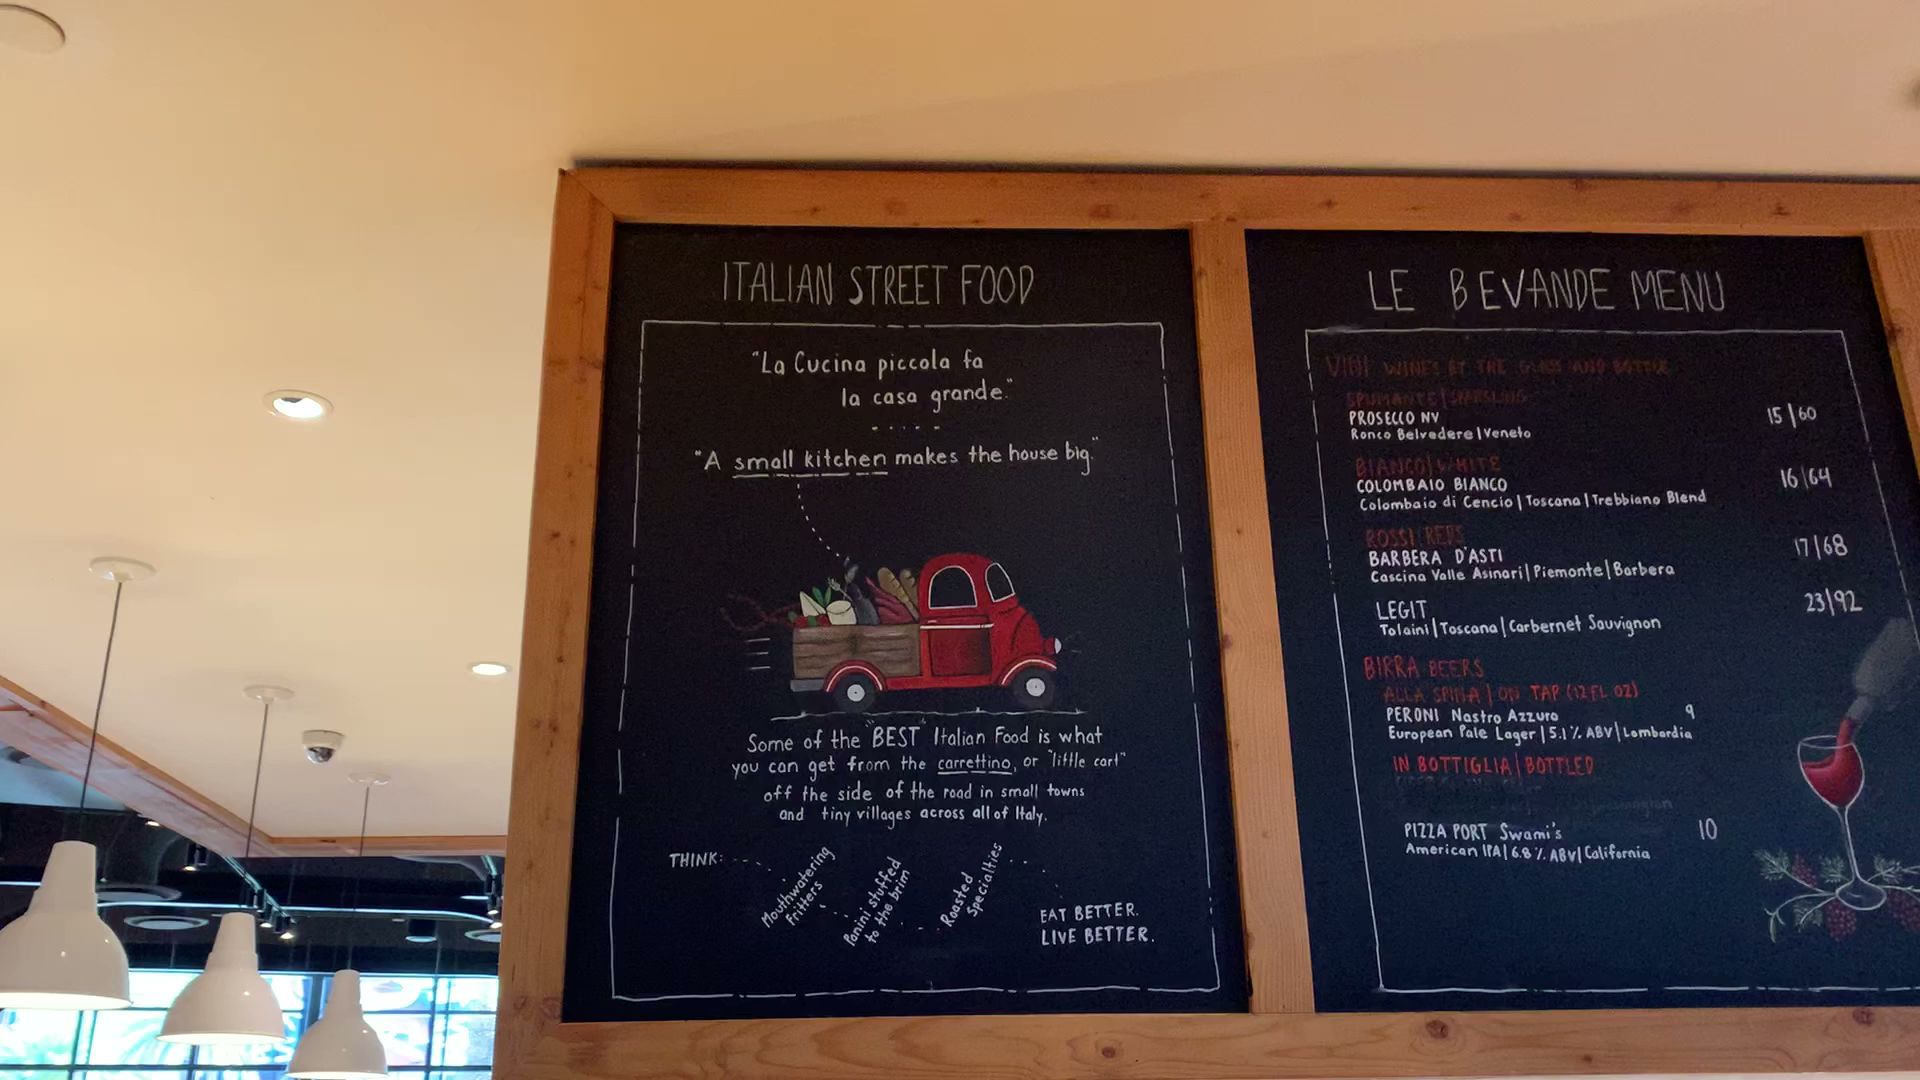 ITALIAN STREET FOOD
"La Cucina piccola fa
la casa grande."
"A small kitchen makes the house big."
Some of the "BEST" Italian Food is what
you can get from the carrettino, or "little cart"
off the side of the road in small towns
and tiny villages across all of Italy.
THINK:
Mouthwatering
Fritters
Panini stuffed
to the brim
Roasted
Specialties
EAT BETTER.
LIVE BETTER.
LE BEVANDE MENU
VINI WINES BY THE GLASS AND BOTTLE
SPUMANTE | SPARKLING
PROSECCO NV 15|60
Ronco Belvedere | Veneto
BIANCO | WHITE
COLOMBAIO BIANCO 16|64
Colombaio di Cencio | Toscana | Trebbiano Blend
ROSSI | REDS
BARBERA D'ASTI 17|68
Cascina Valle Asinari | Piemonte | Barbera
LEGIT 23|92
Tolaini | Toscana | Carbernet Sauvignon
BIRRA BEERS
ALLA SPINA | ON TAP (12 FL OZ)
PERONI Nastro Azzuro 9
European Pale Lager | 5.1% ABV | Lombardia
IN BOTTIGLIA | BOTTLED
PIZZA PORT Swami's 10
American IPA | 6.8% ABV | California